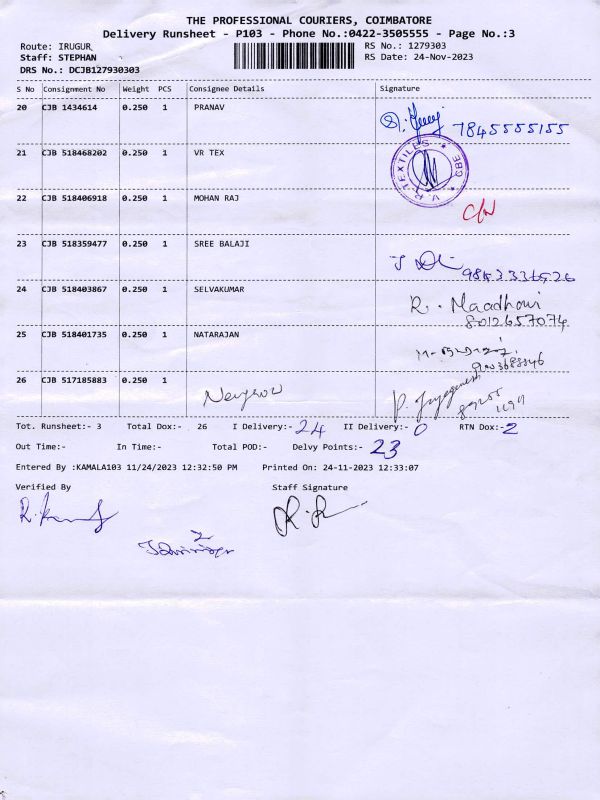 THE PROFESSIONAL COURIERS, COIMBATORE
Delivery Runsheet - P103 - Phone No.:0422-3505555 - Page No.:3
Route: IRUGUR RS No.: 1279303
Staff: STEPHAN RS Date: 24-Nov-2023
DRS No.: DCJB127930303
S No Consignment No Weight PCS Consignee Details Signature
20 CJB 1434614 0.250 1 PRANAV 7845555155
21 CJB 518468202 0.250 1 VR TEX V.R TEXTILES CBE
22 CJB 518406918 0.250 1 MOHAN RAJ
23 CJB 518359477 0.250 1 SREE BALAJI
24 CJB 518403867 0.250 1 SELVAKUMAR R. Maadhavi
8012657074
25 CJB 518401735 0.250 1 NATARAJAN
26 CJB 517185883 0.250 1
Tot. Runsheet:- 3 Total Dox:- 26 I Delivery:- 24 II Delivery:- 0 RTN Dox:- 2
Out Time:- In Time:- Total POD:- Delvy Points:- 23
Entered By :KAMALA103 11/24/2023 12:32:50 PM Printed On: 24-11-2023 12:33:07
Verified By Staff Signature